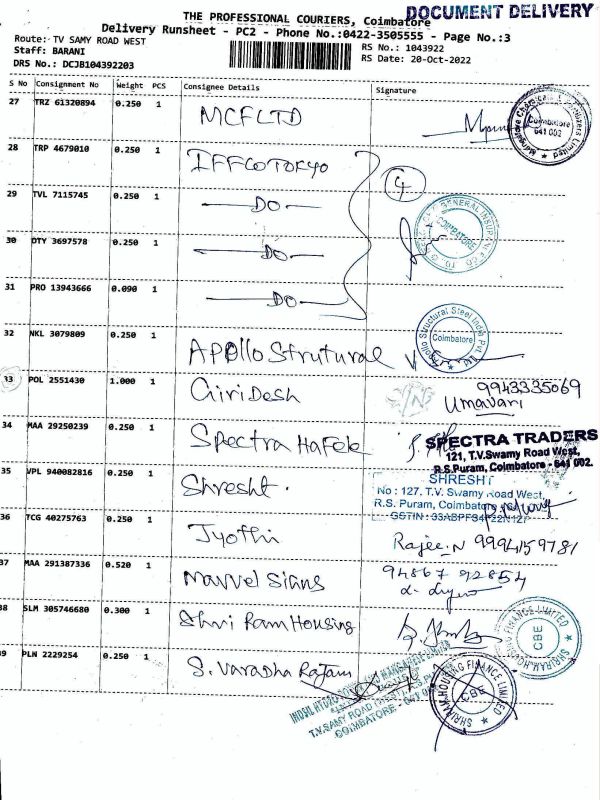 THE PROFESSIONAL COURIERS, Coimbatore
DOCUMENT DELIVERY
Delivery Runsheet - PC2 - Phone No.:0422-3505555 - Page No.:3
Route: TV SAMY ROAD WEST
Staff: BARANI
DRS No.: DCJB104392203
RS No.: 1043922
RS Date: 20-Oct-2022
S No Consignment No Weight PCS Consignee Details Signature
27 TRZ 61320894 0.250 1 MCFLTD
Coimbatore
641 002
28 TRP 4679010 0.250 1 IFFCOTOKYO
4
29 TVL 7115745 0.250 1 DO
COIMBATORE
30 DTY 3697578 0.250 1 DO
31 PRO 13943666 0.090 1 DO
32 NKL 3079809 0.250 1 APOllo Strutural
Apollo Structural Steel India Pvt Ltd
Coimbatore
33 POL 2551430 1.000 1 Giridesh
9943335069
Umavari
34 MAA 29250239 0.250 1 Spectra Hafele
SPECTRA TRADERS
121, T.V.Swamy Road West,
R.S.Puram, Coimbatore - 641 002.
35 VPL 940082816 0.250 1 Shresht
SHRESHT
No : 127, T.V. Swamy Road West,
R.S. Puram, Coimbatore
36 TCG 40275763 0.250 1 Jyothi
Rajee.N 9994159781
37 MAA 291387336 0.520 1 Marvel Signs
94867 92854
38 SLM 305746680 0.300 1 Shri Ram Housing
SHRIRAM HOUSING FINANCE LIMITED
CBE
39 PLN 2229254 0.250 1 S. Varadha Rajam
T.V.SAMY ROAD
COIMBATORE - 641
SHRIRAM HOUSING FINANCE LIMITED
CBE